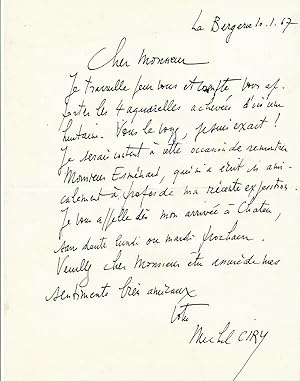 La Bergerie 10.1.67
Cher Monsieur
Je travaille pour vous et compte vous ap-
porter les 4 aquarelles achevées d'ici une
huitaine. Vous le voyez, je suis exact !
Je serais content à cette occasion de rencontrer
Monsieur Esménard, qui m'a écrit si ami-
calement à propos de ma récente exposition.
Je vous appelle dès mon arrivée à Chatou,
sans doute lundi ou mardi prochain.
Veuillez cher Monsieur être assuré de mes
sentiments très amicaux
Votre
Michel CIRY